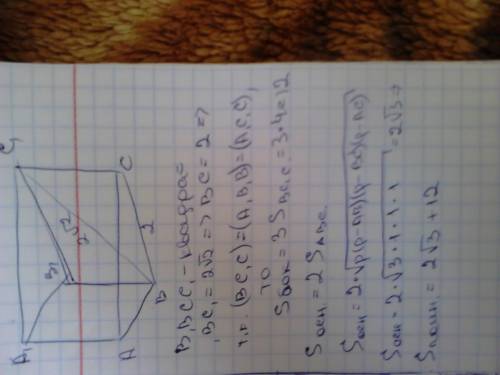 A₁
C₁
B₁
2√2
A
C
2
B
B₁BCC₁ - квадрат
BC₁ = 2√2 => BC = 2 =>
т.к. (BC₁C) = (A₁B₁B) = (A₁C₁C),
то
Sбок = 3 S_BC₁C = 3 * 4 = 12
Sосн = 2 S_ABC.
Sосн = 2 · √p(p-AB)(p-BC)(p-AC)
Sосн = 2 · √3 · 1 · 1 · 1 = 2√3 =>
Sполн = 2√3 + 12